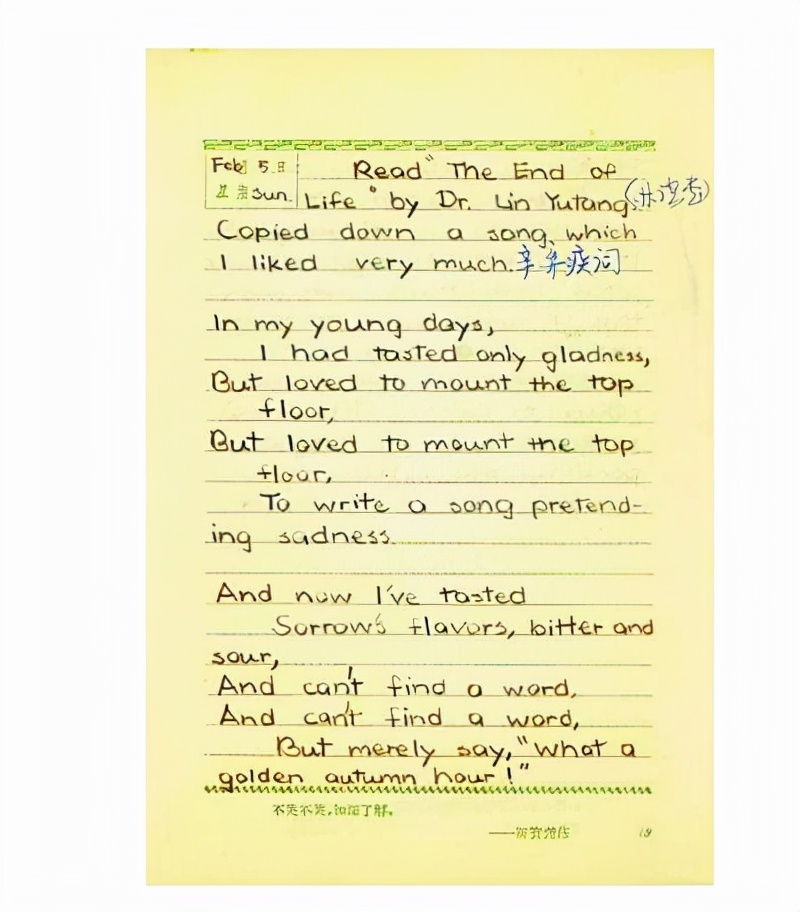 Feb 5日 Read "The End of
星期 Sun. Life" by Dr. Lin Yutang. (林语堂)
Copied down a song, which
I liked very much. 辛弃疾词
In my young days,
I had tasted only gladness,
But loved to mount the top
floor,
But loved to mount the top
floor,
To write a song pretend-
ing sadness.
And now I've tasted
Sorrow's flavors, bitter and
sour,
And can't find a word,
And can't find a word,
But merely say, "What a
golden autumn hour!"
19